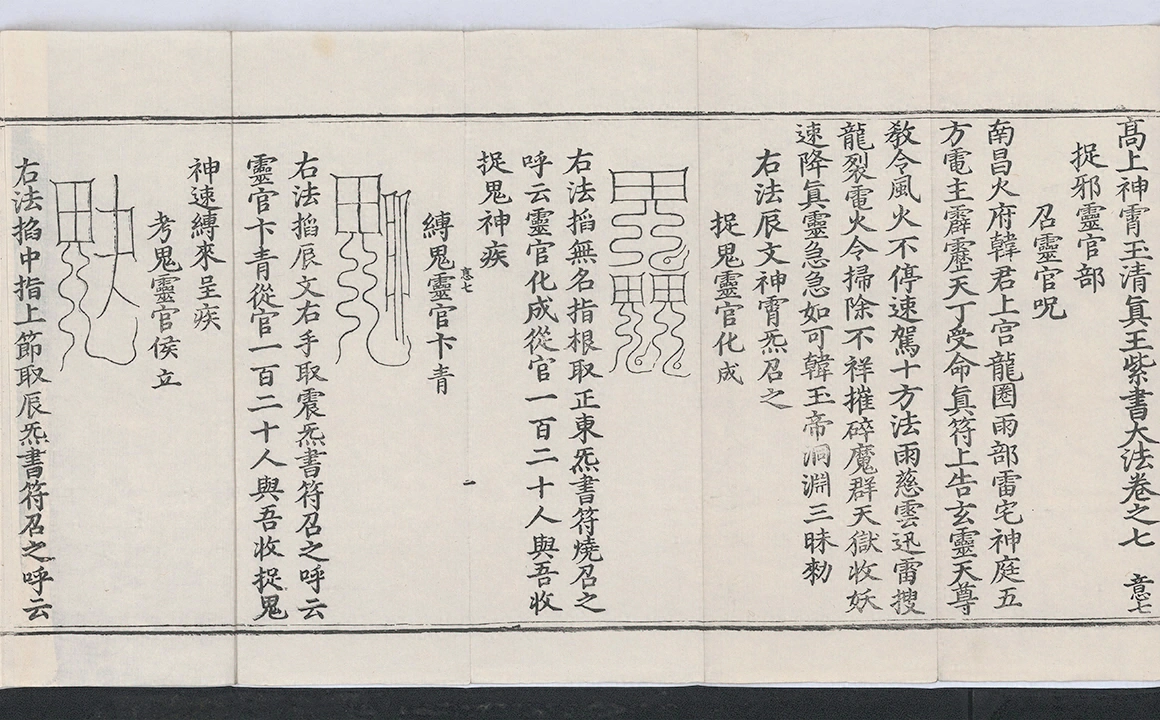 髙上神霄玉清眞王紫書大法卷之七 意七
捉邪靈官部
召靈官呪
南昌火府韓君上宫龍圈雨部雷宅神庭五
方電主霹靂天丁受命眞符上告玄靈天尊
教令風火不停速駕十方法雨慈雲迅雷搜
龍裂電火令掃除不祥摧碎魔群天獄收妖
速降眞靈急急如可韓玉帝洞淵三昧勑
右法辰文神霄炁召之
捉鬼靈官化成
右法掐無名指根取正東炁書符燒召之
呼云靈官化成從官一百二十人與吾收
捉鬼神疾
意七
二
縛鬼靈官卞青
右法掐辰文右手取震炁書符召之呼云
靈官卞青從官一百二十人與吾收捉鬼
神速縛來呈疾
考鬼靈官侯立
右法掐中指上節取辰炁書符召之呼云